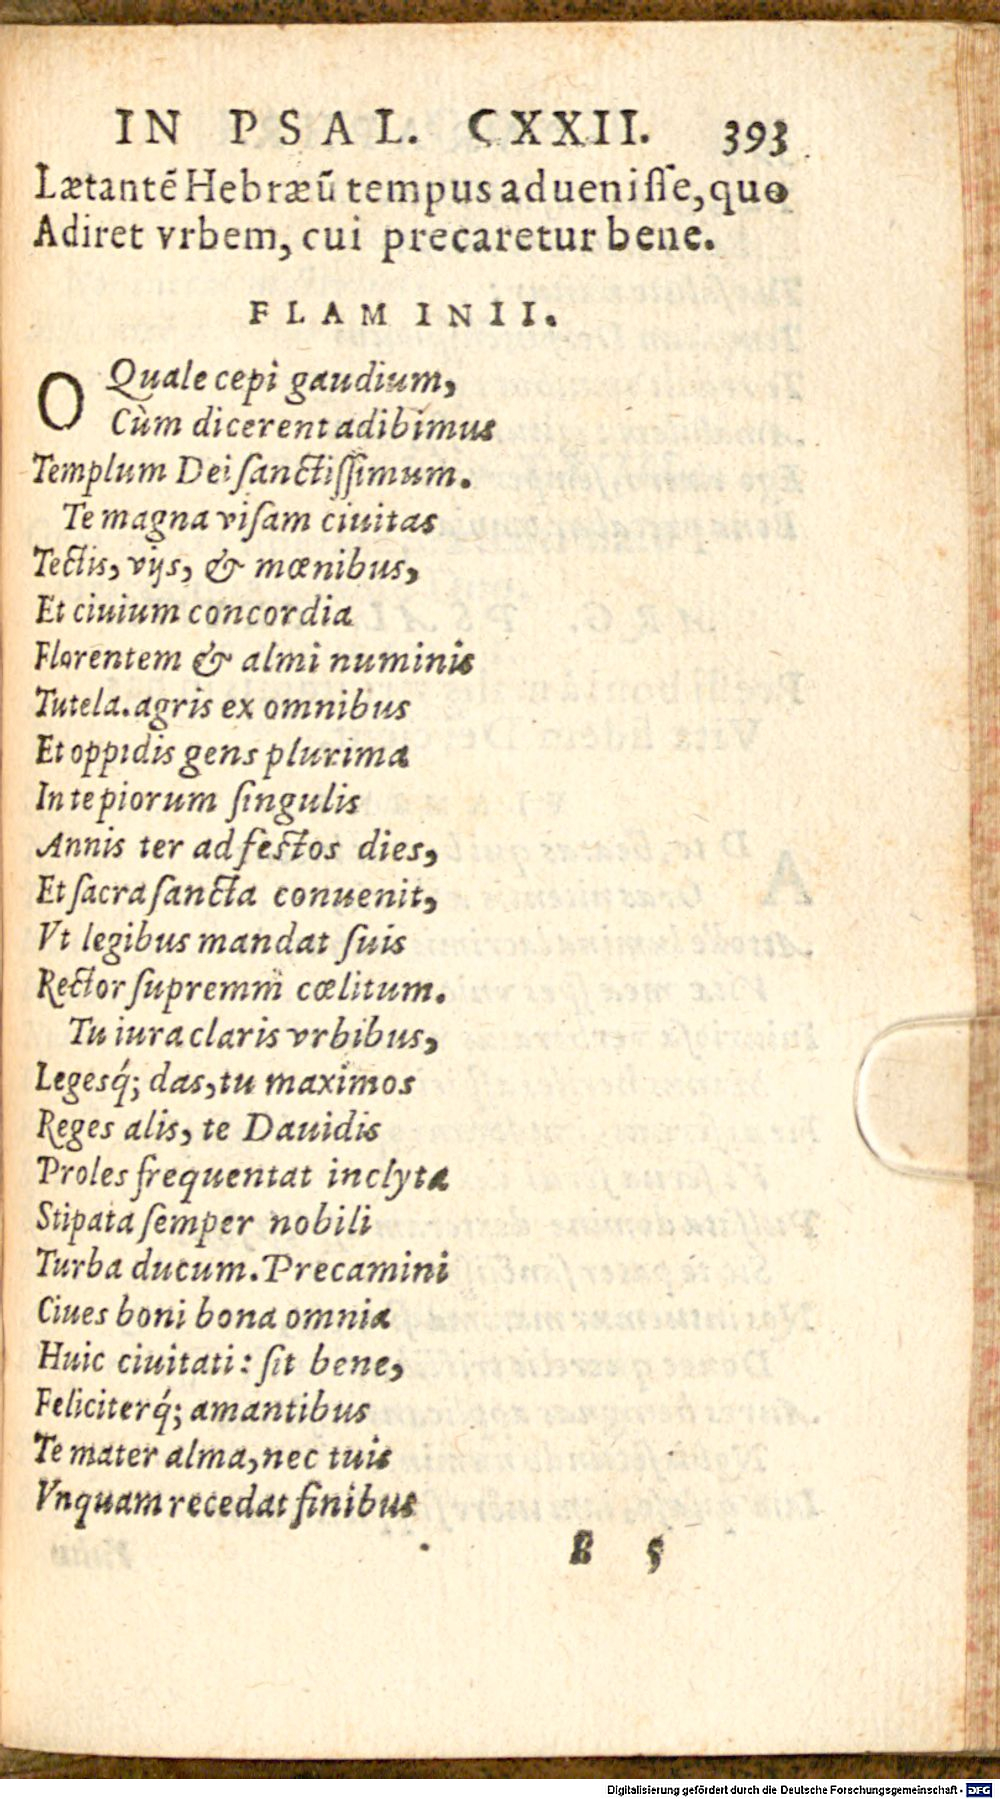 IN PSAL. CXXII. 393
Lætantẽ Hebræũ tempus adueniſſe, quo
Adiret vrbem, cui precaretur bene.
FLAMINII.
O Quale cepi gaudium,
Cùm dicerent adibimus
Templum Dei ſanctiſſimum.
Te magna viſam ciuitas
Tectis, vijs, & mœnibus,
Et ciuium concordia
Florentem & almi numinis
Tutela. agris ex omnibus
Et oppidis gens plurima
In te piorum ſingulis
Annis ter ad feſtos dies,
Et ſacra ſancta conuenit,
Vt legibus mandat ſuis
Rector ſupremm cœlitum.
Tu iura claris vrbibus,
Legesq́; das, tu maximos
Reges alis, te Dauidis
Proles frequentat inclyta
Stipata ſemper nobili
Turba ducum. Precamini
Ciues boni bona omnia
Huic ciuitati: ſit bene,
Feliciterq́; amantibus
Te mater alma, nec tuis
Vnquam recedat finibus
B 5
Digitalisierung gefördert durch die Deutsche Forschungsgemeinschaft - DFG